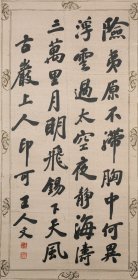 險夷原不滯胸中何異
浮雲過太空夜靜海濤
三萬里月明飛錫下天風
古巖上人印可 王人文